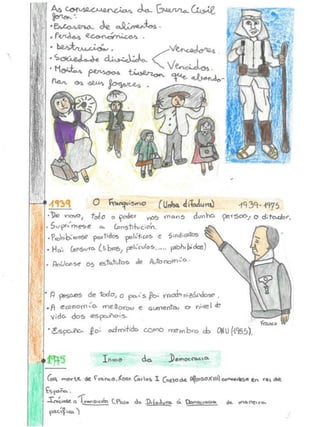 As consecuencias da Guerra Civil
foron:
• Escasera de alimentos.
• Perdas económicas.
• Destrucción.
• Sociedade dividida
Vencedores.
Vencidos.
• Moitas persoas tiveron que abando-
nar os seus fogares.
1939 O Franquismo (Unha ditadura) 1939-1975
• De novo, todo o poder nas mans dunha persoa, o ditador.
• Suprímese a Constitución.
• Prohíbense partidos políticos e sindicatos
• Hai Censura (libros, películas..... prohibidos)
• Anúlanse os estatutos de Autonomía.
Franco
• A pesares de todo, o país foi modernizándose.
• A economía mellorou e aumentou o nivel de
vida dos españois.
• España foi admitido como membro da ONU (1955).
1975 Inicio da Democracia
Coa morte de Franco, Xoan Carlos I (neto de Alfonso XIII) convértese en rei de
España.
Iníciase a Transición (Paso da Ditadura á Democracia de maneira
pacífica)